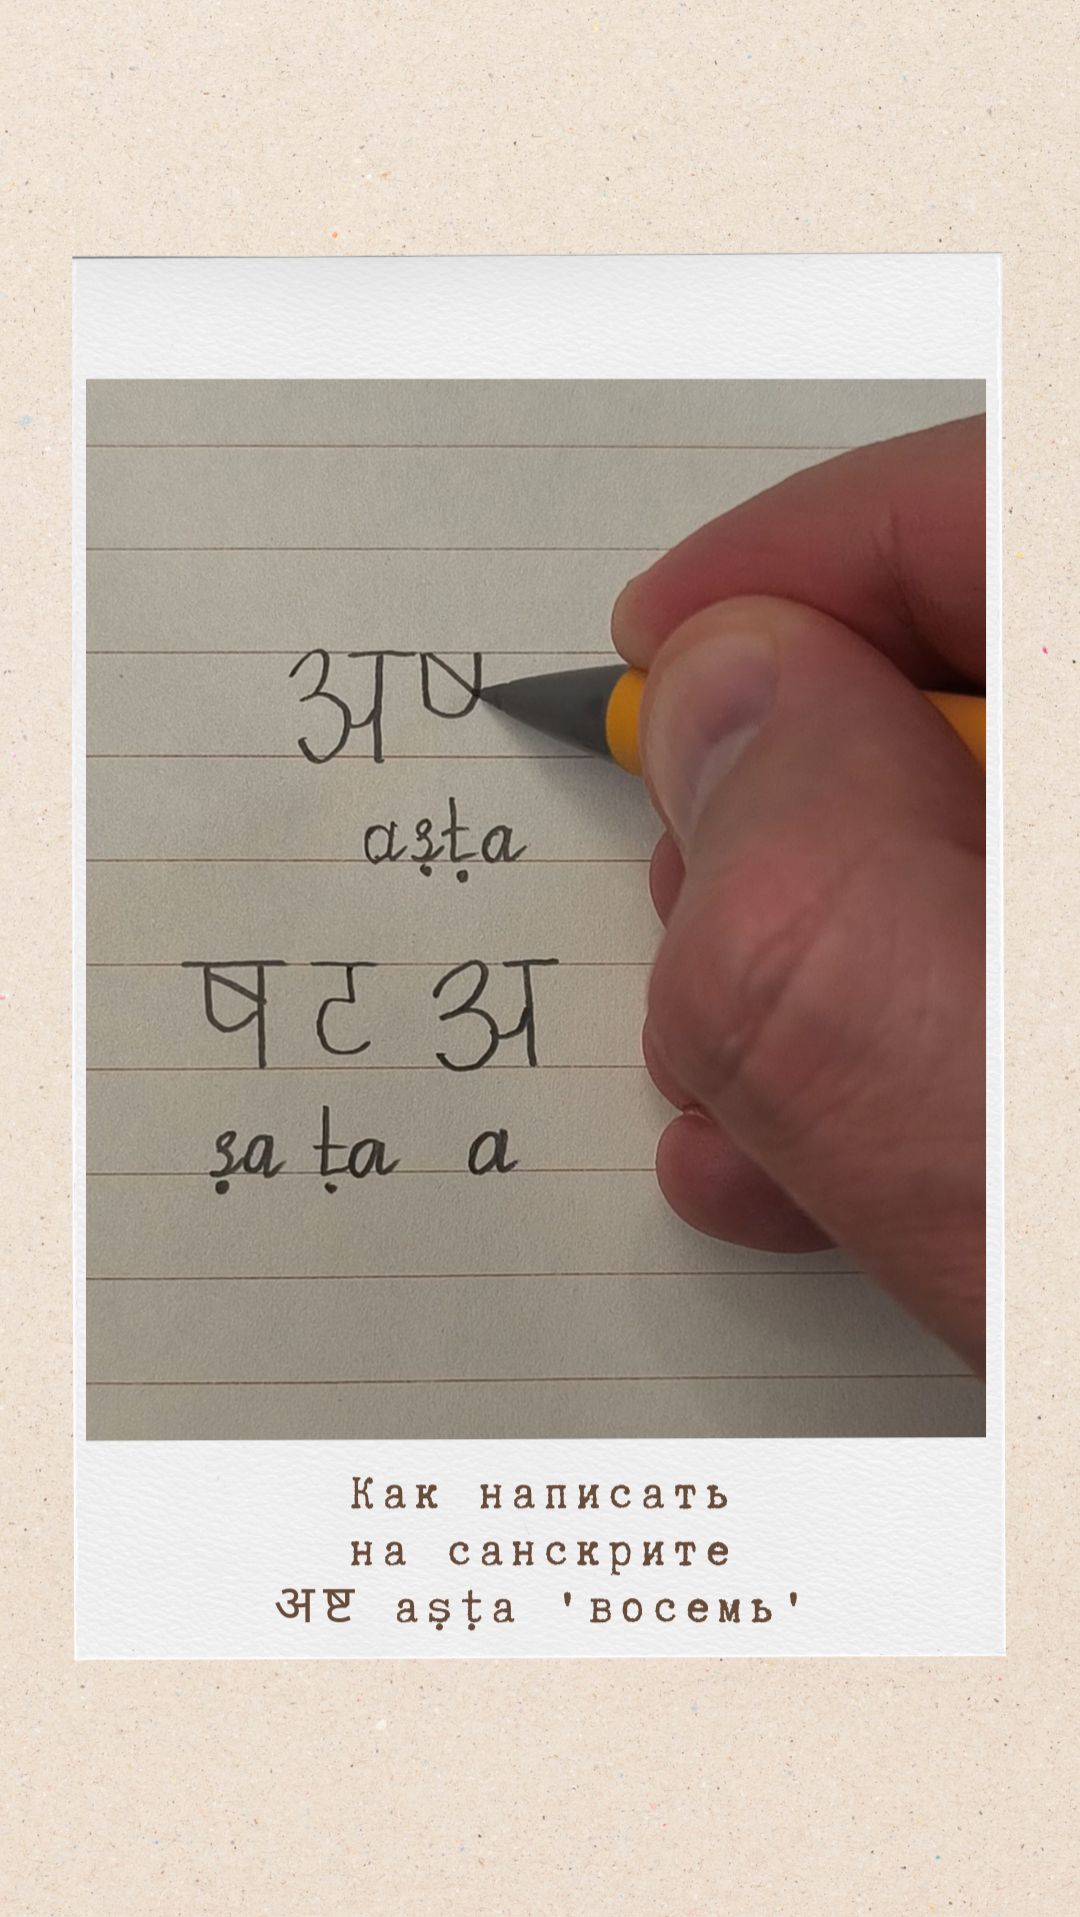 अष
aṣṭa
ष ट अ
ṣa ṭa a
Как написать
на санскрите
अष्ट aṣṭa 'восемь'